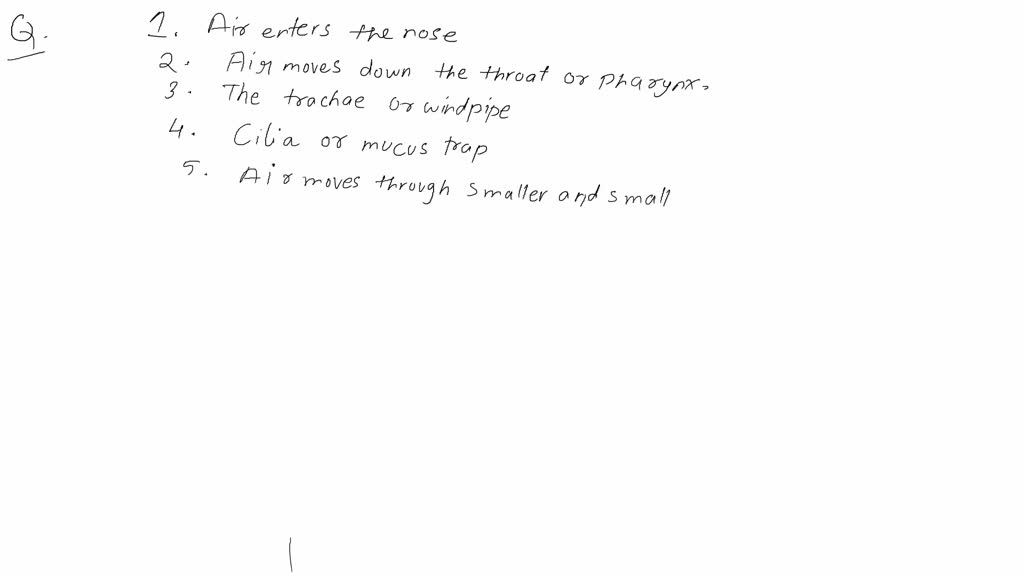 Q. 1. Air enters the nose
2. Air moves down the throat or pharynx.
3. The trachae or windpipe
4. Cilia or mucus trap
5. Air moves through smaller and small